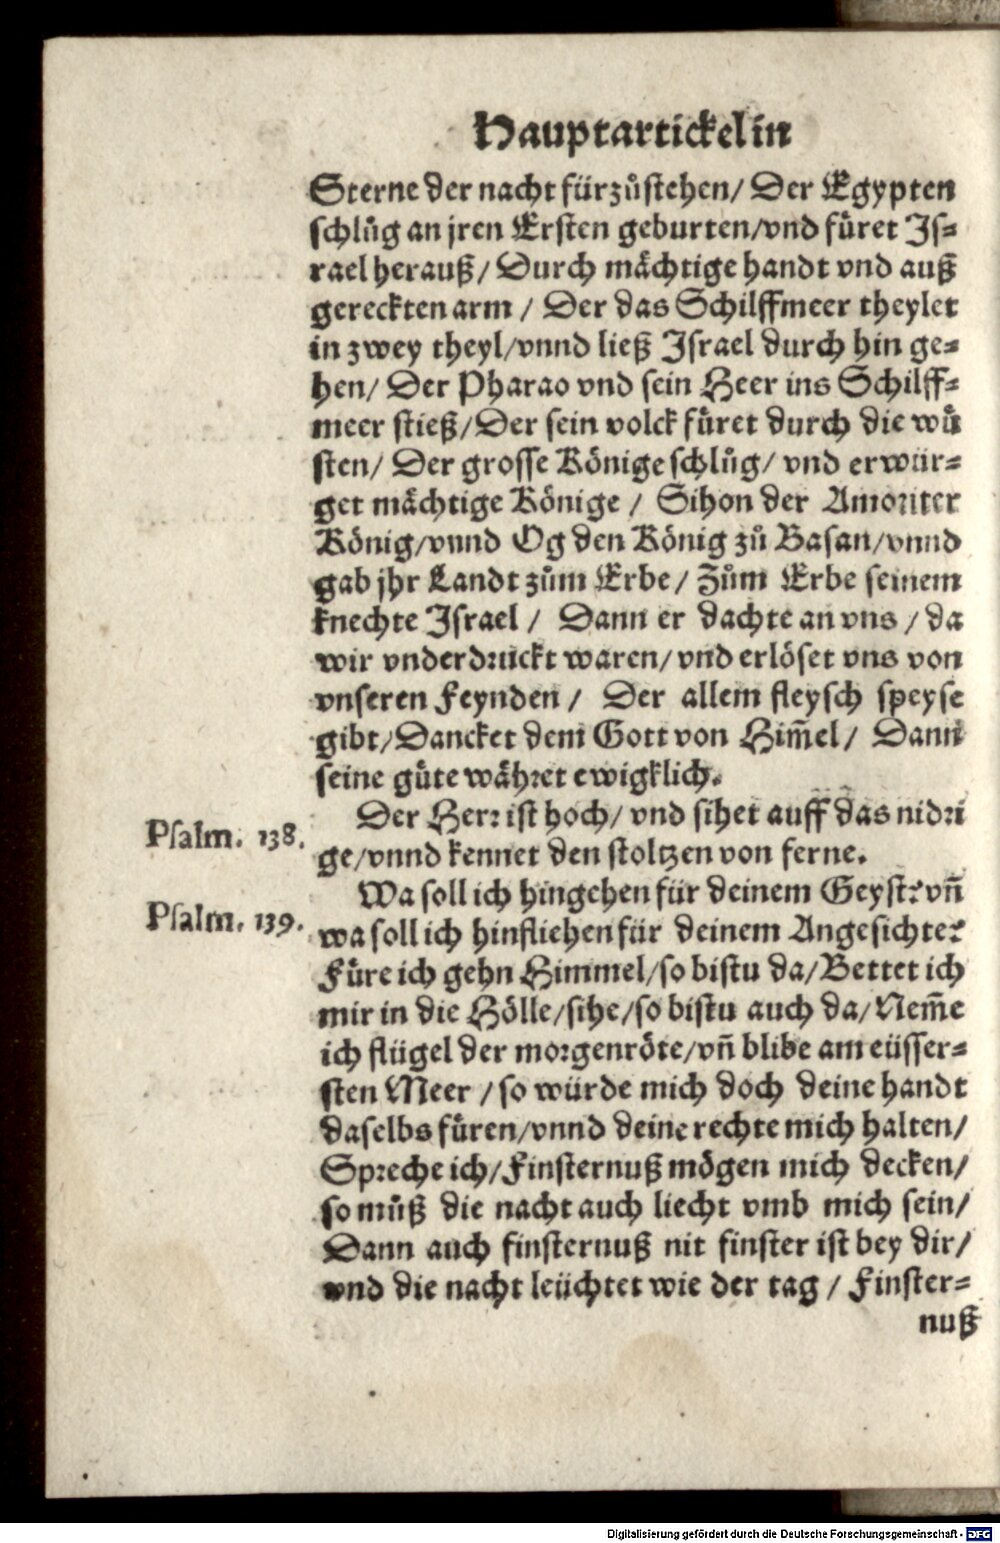 Hauptartickel in
Sterne der nacht fürzůstehen/ Der Egypten
schlůg an jren Ersten geburten/vnd fůret Js⸗
rael herauß/ Durch mächtige handt vnd auß
gereckten arm / Der das Schilffmeer theylet
in zwey theyl/vnnd ließ Jsrael durch hin ge⸗
hen/ Der Pharao vnd sein Heer ins Schilff⸗
meer stieß/Der sein volck fůret durch die wů
sten/ Der grosse Könige schlůg/ vnd erwür⸗
get mächtige Könige / Sihon der Amoriter
König/vnnd Og den König zů Basan/vnnd
gab jhr Landt zům Erbe/ Zům Erbe seinem
knechte Jsrael / Dann er dachte an vns / da
wir vnderdruckt waren/vnd erlöset vns von
vnseren Feynden / Der allem fleysch speyse
gibt/Dancket dem Gott von Him̃el/ Dann
seine gůte währet ewigklich.
Der Herr ist hoch/ vnd sihet auff das nidri
Psalm. 138.
ge/vnnd kennet den stoltzen von ferne.
Wa soll ich hingehen für deinem Geyst? vñ
Psalm. 139.
wa soll ich hinfliehen für deinem Angesichte?
Fůre ich gehn Himmel/so bistu da/Bettet ich
mir in die Hölle/sihe/so bistu auch da/Nem̃e
ich flügel der morgenröte/vñ blibe am eüsser⸗
sten Meer /so würde mich doch deine handt
daselbs fůren/vnnd deine rechte mich halten/
Spreche ich/Finsternuß mögen mich decken/
so můß die nacht auch liecht vmb mich sein/
Dann auch finsternuß nit finster ist bey dir/
vnd die nacht leüchtet wie der tag / Finster⸗
nuß
Digitalisierung gefördert durch die Deutsche Forschungsgemeinschaft - DFG